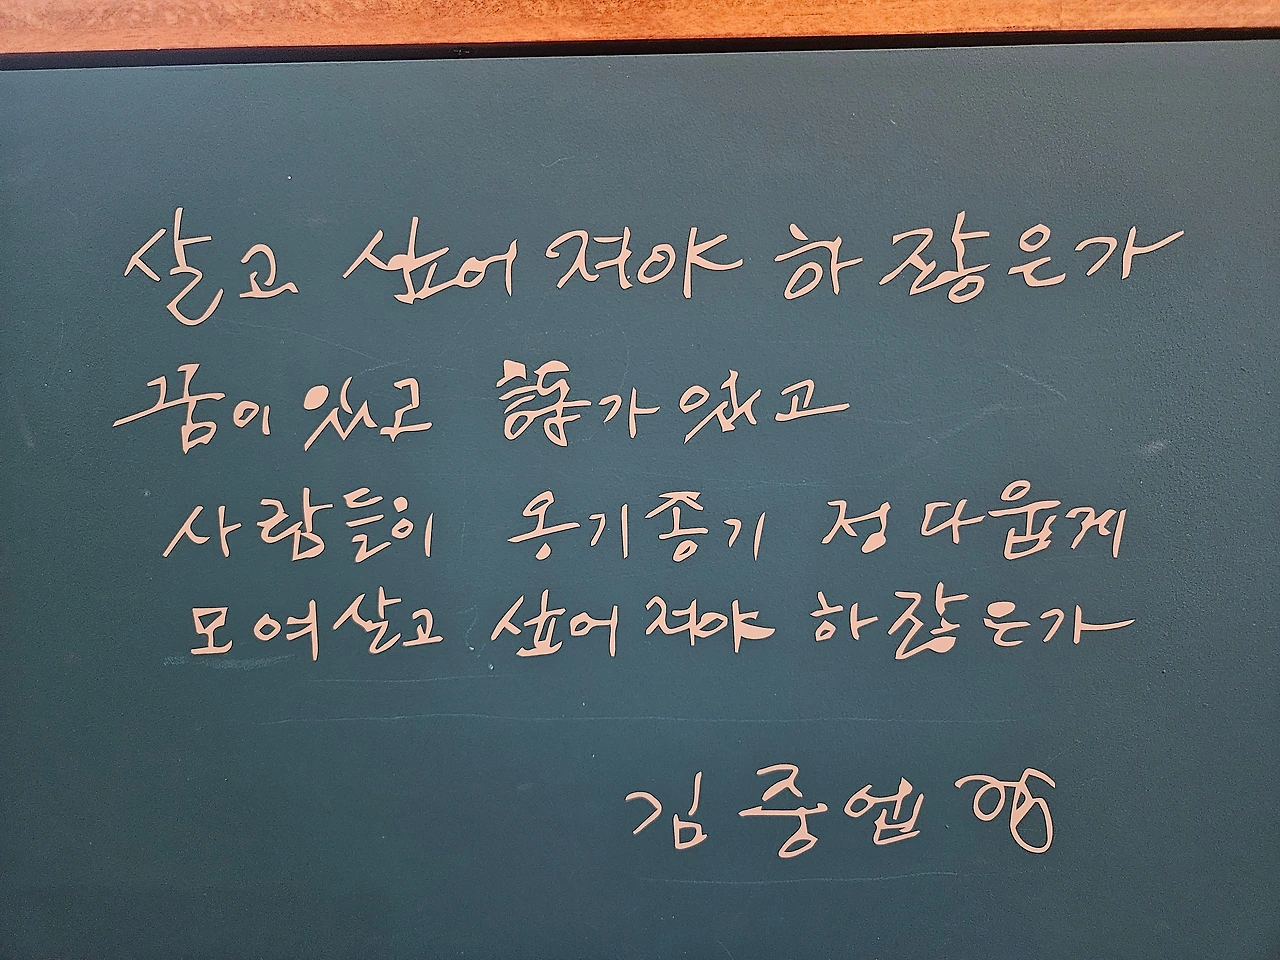 살고 싶어져야 하쟎은가
꿈이 있고 가 있고
사람들이 옹기종기 정다웁게
모여살고 싶어져야 하쟎은가
김중업